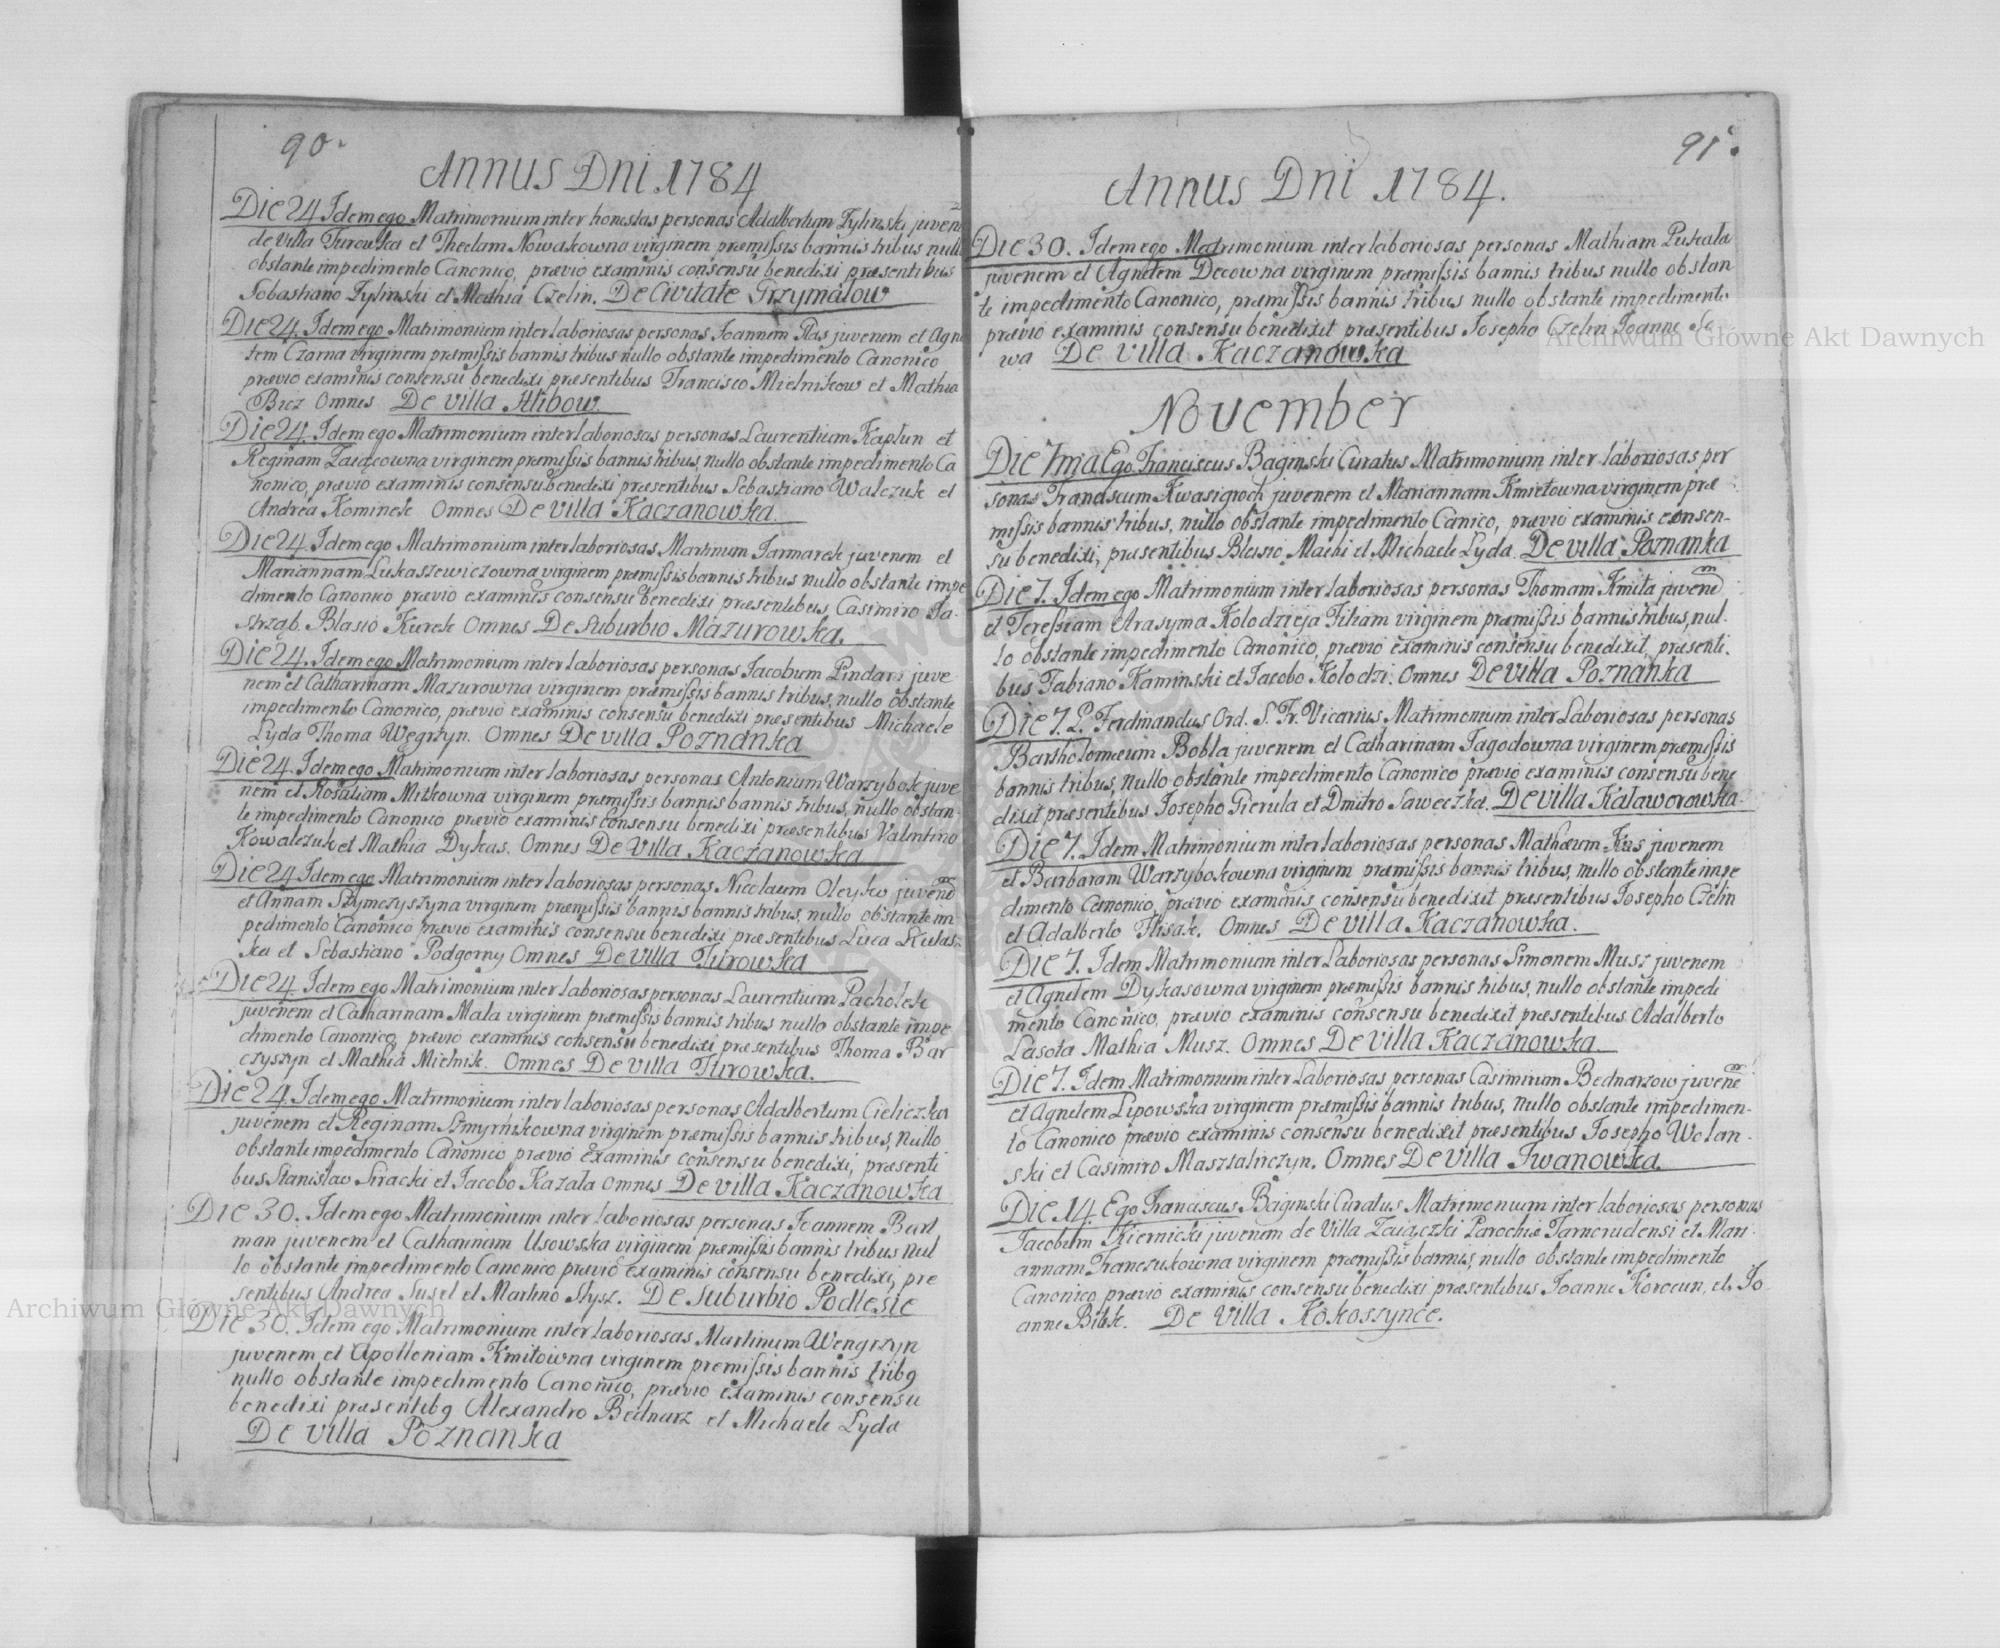 90.
Annus Dni 1784
Die 24 Idem ego Matrimonium inter honestas personas Adalbertum Tylinski juven
de Villa Turowka et Theclam Nowakowna virginem præmissis bannis tribus nullo
obstante impedimento Canonico, prævio examinis consensu benedixi præsentibus
Sobastiano Tylinski et Mathia Czelin. De Civitate Grzymałow
Die 24. Idem ego Matrimonium inter laboriosas personas Joannem Ptas juvenem et Agne
tem Czarna virginem præmissis bannis tribus nullo obstante impedimento Canonico
prævio examinis consensu benedixi præsentibus Francisco Mielnikow et Mathia
Bicz Omnes De villa Hlibow.
Die 24. Idem ego Matrimonium inter laboriosas personas Laurentium Kapłun et
Reginam Zaiącowna virginem præmissis bannis tribus, nullo obstante impedimento Ca
nonico, prævio examinis consensu benedixi præsentibus Sebastiano Walczuk et
Andrea Kominek Omnes De Villa Kaczanowka.
Die 24. Idem ego Matrimonium inter laboriosas Martinum Jarmarek juvenem et
Mariannam Lukaszewiczowna virginem præmissis bannis tribus nullo obstante impe
dimento Canonico prævio examinis consensu benedixi præsentibus Casimiro Ja-
strząb. Blasio Kurek Omnes De Suburbio Mazurowka.
Die 24. Idem ego Matrimonium inter laboriosas personas Jacobum Pindar juve
nem et Catharinam Mazurowna virginem præmissis bannis tribus, nullo obstante
impedimento Canonico, prævio examinis consensu benedixi præsentibus Michaele
Lyda Thoma Węgrzyn. Omnes De villa Poznanka
Die 24. Idem ego Matrimonium inter laboriosas personas Antonium Warzybok juve
nem et Rosaliam Mitkowna virginem præmissis bannis bannis tribus, nullo obstan-
te impedimento Canonico prævio examinis consensu benedixi præsentibus Valentino
Kowalczuk et Mathia Dykas. Omnes De Villa Kaczanowka
Die 24 Idem ego Matrimonium inter laboriosas personas Nicolaum Oleyko juvenē
et Annam Szymczyszyna virginem præmissis bannis bannis tribus, nullo obstante im
pedimento Canonico prævio examinis consensu benedixi præsentibus Luca Kulasz
ka et Sebastiano Podgorny Omnes De villa Turowka
Die 24. Idem ego Matrimonium inter laboriosas personas Laurentium Pacholek
juvenem et Catharinam Mala virginem præmissis bannis tribus nullo obstante impe
dimento Canonico, prævio examinis consensu benedixi præsentibus Thoma Bar
czyszyn et Mathia Mielnik. Omnes De Villa Turowka.
Die 24. Idem ego Matrimonium inter laboriosas personas Adalbertum Cieliczka
juvenem et Reginam Szmyrnikowna virginem præmissis bannis tribus, nullo
obstante impedimento Canonico prævio examinis consensu benedixi, præsenti
bus Stanislao Siracki et Jacobo Kazala Omnes De villa Kaczanowka
Die 30. Idem ego Matrimonium inter laboriosas personas Joannem Bart
man juvenem et Catharinam Usowska virginem præmissis bannis tribus nul
lo obstante impedimento Canonico prævio examinis consensu benedixi, pre
sentibus Andrea Suzel et Martino Slysz. De Suburbio Podlesie
Die 30. Idem ego Matrimonium inter laboriosas Martinum Wengrzyn
juvenem et Apolloniam Kmitowna virginem premissis bannis trib9
nullo obstante impedimento Canonico, prævio examinis consensu
benedixi præsentib9 Alexandro Bednarz et Michaele Lyda
De villa Poznanka
91.
Annus Dni 1784.
Die 30. Idem ego Matrimonium inter laboriosas personas Mathiam Pukala
juvenem et Agnetem Decowna virginem præmissis bannis tribus nullo obstan
te impedimento Canonico, præmissis bannis tribus nullo obstante impedimento
prævio examinis consensu benedixit præsentibus Josepho Czelin Joanne
wa De villa Kaczanowka
November
Die 7ma Ego Franciscus Baginski Curatus Matrimonium inter laboriosas per
sonas Franciscum Kwasigroch juvenem et Mariannam Kmietowna virginem præ
missis bannis tribus, nullo obstante impedimento Canico, prævio examinis consen-
su benedixi, præsentibus Blasio Machi et Michaele Lyda. De villa Poznanka
Die 7. Idem ego Matrimonium inter laboriosas personas Thomam Kmita juvenē
et Teressiam Arasyma Kolodzieja Filiam virginem præmissis bannis tribus, nul-
lo obstante impedimento Canonico, prævio examinis consensu benedixit, præsenti-
bus Fabiano Kaminski et Jacobo Kolodzi. Omnes De villa Poznanka
Die 7. P. Ferdinandus Ord. S. Fr. Vicarius Matrimonium inter Laboriosas personas
Bartholomæum Bobla juvenem et Catharinam Jagodowna virginem præmissis
bannis tribus, nullo obstante impedimento Canonico prævio examinis consensu bene
dixit præsentibus Josepho Gierula et Dmitro Saweczka. De villa Kalaworowka.
Die 7. Idem Matrimonium inter laboriosas personas Mathæum Kus juvenem
et Barbaram Warzybokowna virginem præmissis bannis tribus, nullo obstante impe
dimento Canonico, prævio examinis consensu benedixit præsentibus Josepho Czelin
et Adalberto Flisak. Omnes De villa Kaczanowka.
Die 7. Idem Matrimonium inter Laboriosas personas Simonem Musz juvenem
et Agnetem Dykasowna virginem præmissis bannis tribus, nullo obstante impedi
mento Canonico, prævio examinis consensu benedixit præsentibus Adalberto
Lasota Mathia Musz. Omnes De Villa Kaczanowka.
Die 7. Idem Matrimonium inter Laboriosas personas Casimirum Bednarzow juvenē
et Agnetem Lipowska virginem præmissis bannis tribus, nullo obstante impedimen-
to Canonico prævio examinis consensu benedixit præsentibus Josepho Wolan-
ski et Casimiro Masztalirczyn. Omnes De Villa Iwanowka.
Die 14. Ego Franciscus Baginski Curatus Matrimonium inter laboriosas personas
Jacobum Kiernicki juvenem de Villa Zaiączki Parochiæ Tarnorudensi et Mari-
annam Franczukowna virginem præmissis bannis, nullo obstante impedimento
Canonico prævio examinis consensu benedixi præsentibus Joanne Korocun, et Jo-
anne Bilik. De Villa Kokoszynce.
Archiwum Główne Akt Dawnych
Archiwum Główne Akt Dawnych